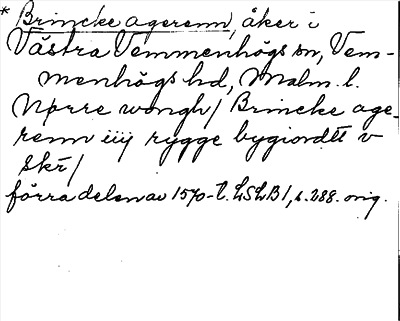 * Brincke agerenn, åker i
Västra Vemmenhögs sn, Vem-
menhögs hd, Malm. l.
Nørre wongh / Brincke age-
renn iiij rygge bygiordtt v
skr̄ /
förra delen av 1570-t. LSLB 1, s. 288. orig.